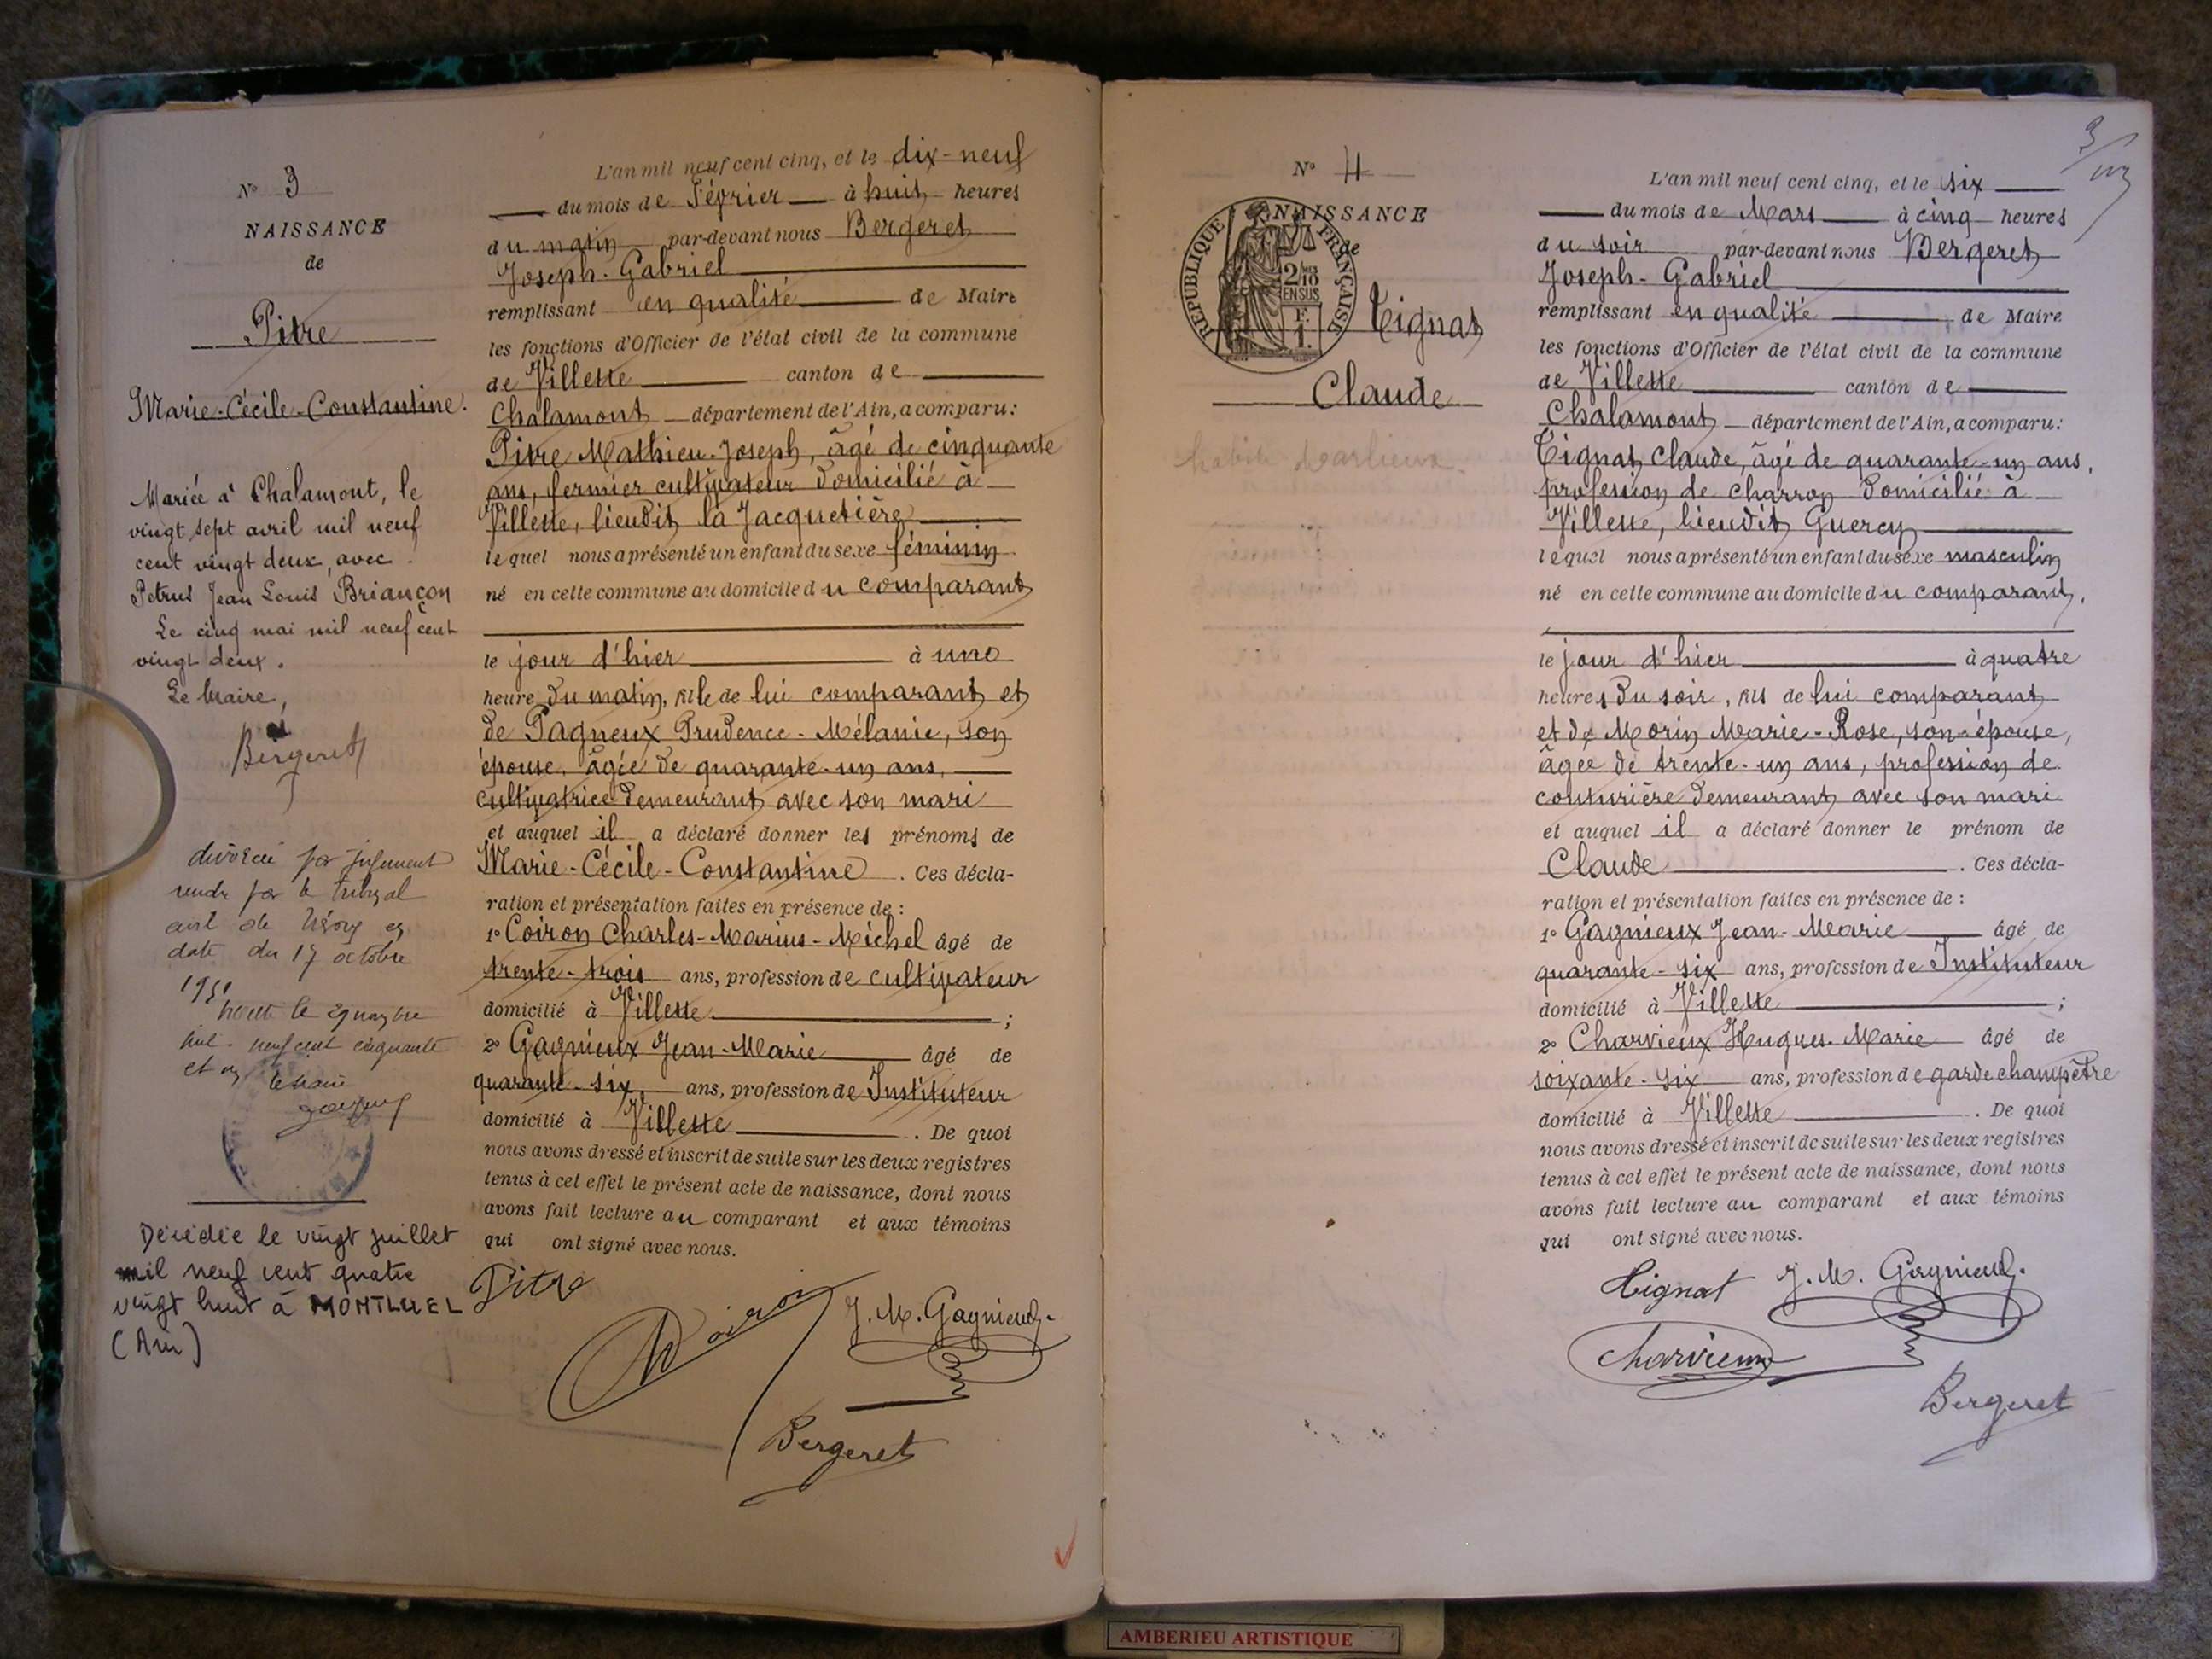 N° 3
NAISSANCE
de
Pitre
Marie-Cécile-Constantine.
Mariée à Chalamont, le
vingt sept avril mil neuf
cent vingt deux, avec
Petrus Jean Louis Briançon
Le cinq mai mil neuf cent
vingt deux.
Le Maire,
Bergeret
divorcée par jugement
rendu par le tribunal
date du 17 octobre
1951
mil neuf cent cinquante
et un le maire
Décédée le vingt juillet
mil neuf cent quatre
vingt huit à MONTLUEL
(Ain)
L'an mil neuf cent cinq, et le dix-neuf
du mois de Février à huit heures
du matin par-devant nous Bergeret
Joseph-Gabriel
remplissant en qualité de Maire
les fonctions d'Officier de l'état civil de la commune
de Villette canton de
Chalamont département de l'Ain, a comparu:
Pitre Mathieu-Joseph, âgé de cinquante
ans, fermier cultivateur domicilié à
Villette, lieudit la Jacquetière
lequel nous a présenté un enfant du sexe féminin
né en cette commune au domicile du comparant
le jour d'hier à une
heure du matin, fille de lui comparant et
de Pagneux Prudence-Mélanie, son
épouse, âgée de quarante-un ans,
cultivatrice demeurant avec son mari
et auquel il a déclaré donner les prénoms de
Marie-Cécile-Constantine. Ces décla-
ration et présentation faites en présence de :
1° Coiron Charles-Marius-Michel âgé de
trente-trois ans, profession de cultivateur
domicilié à Villette ;
2° Gagnieux Jean-Marie âgé de
quarante-six ans, profession de Instituteur
domicilié à Villette. De quoi
nous avons dressé et inscrit de suite sur les deux registres
tenus à cet effet le présent acte de naissance, dont nous
avons fait lecture au comparant et aux témoins
qui ont signé avec nous.
Pitre
Coiron
J. M. Gagnieux.
Bergeret
3
N° 4
NAISSANCE
de
RÉPUBLIQUE FRANÇAISE
2/10
EN SUS
Tignat
Claude
L'an mil neuf cent cinq, et le six
du mois de Mars à cinq heures
du soir par-devant nous Bergeret
Joseph-Gabriel
remplissant en qualité de Maire
les fonctions d'Officier de l'état civil de la commune
de Villette canton de
Chalamont département de l'Ain, a comparu:
Tignat Claude, âgé de quarante-un ans,
profession de charron domicilié à
Villette, lieudit Guercy
lequel nous a présenté un enfant du sexe masculin
né en cette commune au domicile du comparant,
le jour d'hier à quatre
heures du soir, fils de lui comparant
et de Morin Marie-Rose, son épouse,
âgée de trente-un ans, profession de
couturière demeurant avec son mari
et auquel il a déclaré donner le prénom de
Claude. Ces décla-
ration et présentation faites en présence de :
1° Gagnieux Jean-Marie âgé de
quarante-six ans, profession de Instituteur
domicilié à Villette ;
2° Charvieux Hugues-Marie âgé de
soixante-six ans, profession de garde champêtre
domicilié à Villette. De quoi
nous avons dressé et inscrit de suite sur les deux registres
tenus à cet effet le présent acte de naissance, dont nous
avons fait lecture au comparant et aux témoins
qui ont signé avec nous.
Tignat J. M. Gagnieux.
Charvieux
Bergeret
AMBERIEU ARTISTIQUE